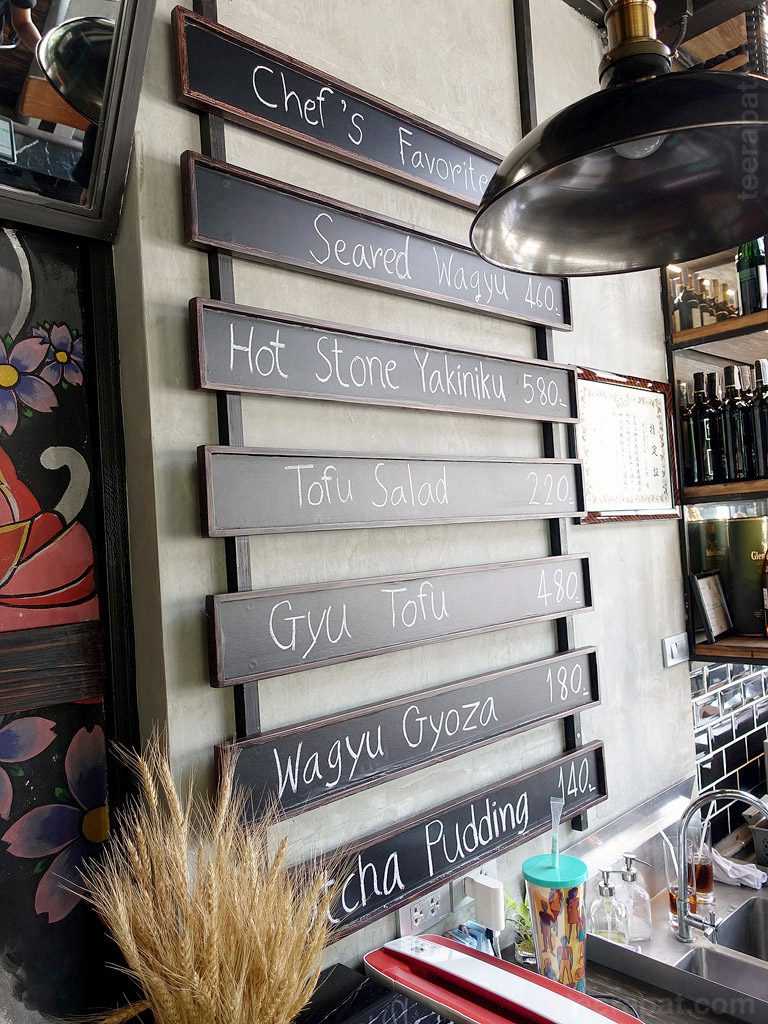 Chef's Favorite
Seared Wagyu 460.-
Hot Stone Yakiniku 580.-
Tofu Salad 220.-
Gyu Tofu 480.-
Wagyu Gyoza 180.-
tcha Pudding 140.-
指定証
Glen
teerapat
teerapat.com